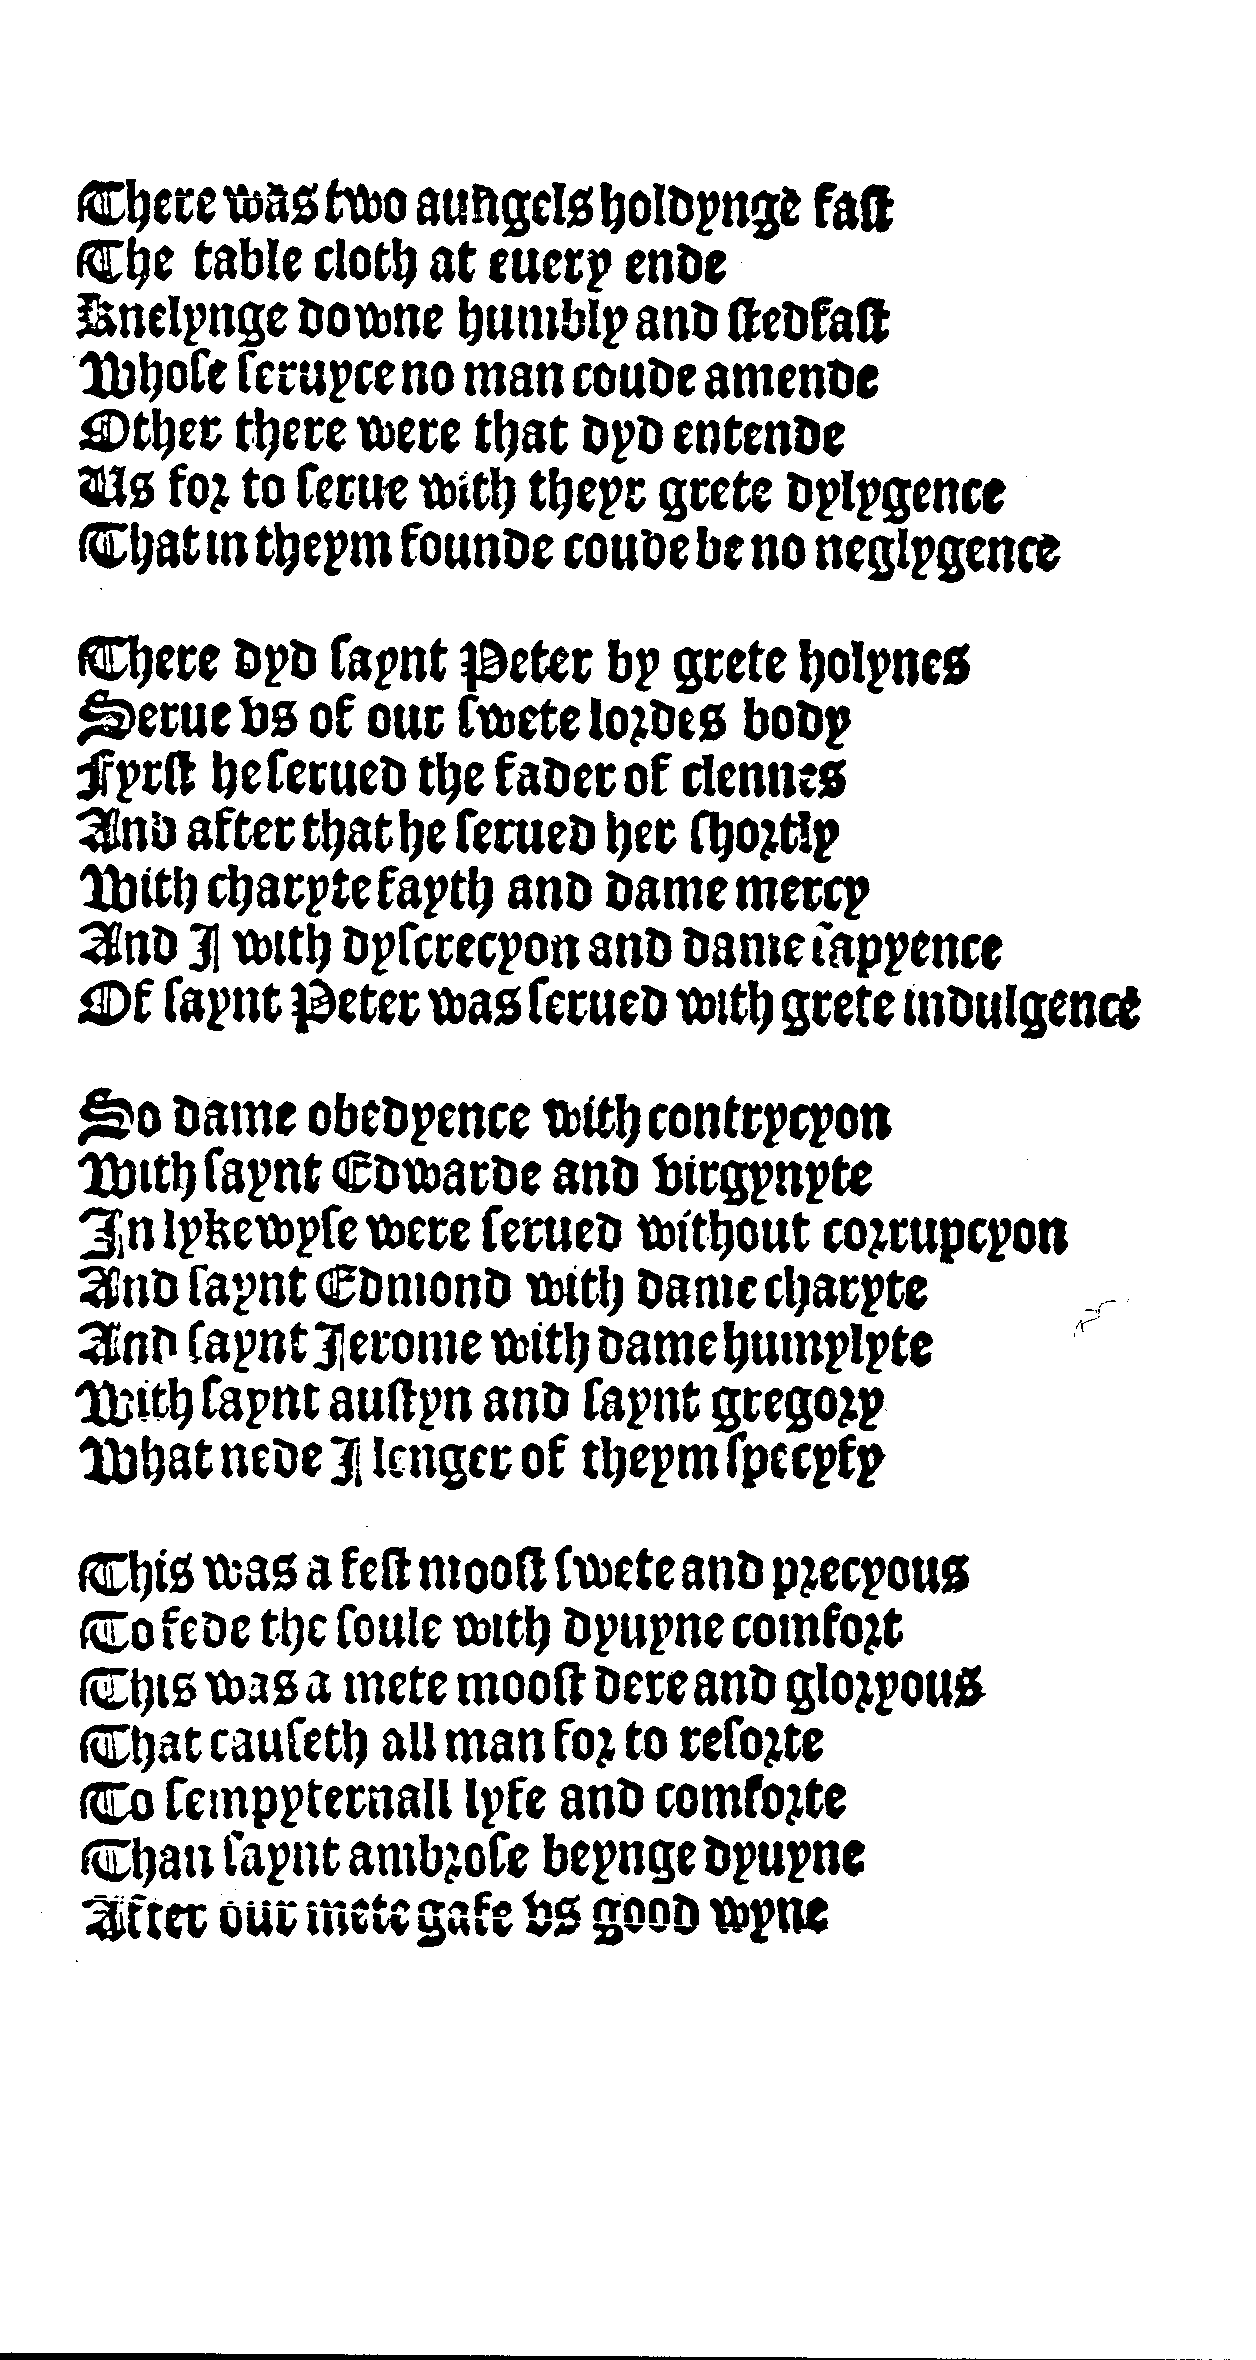 There was two aungels holdynge faſt
The table cloth at euery ende
Knelynge downe humbly and ſtedfaſt
Whoſe ſeruyce no man coude amende
Other there were that dyd entende
Us foꝛ to ſerue with theyr grete dylygence
That in theym founde coude be no neglygence

There dyd ſaynt Peter by grete holynes
Serue vs of our ſwete loꝛdes body
Fyrſt he ſerued the fader of clennes
And after that he ſerued her ſhoꝛtly
With charyte fayth and dame mercy
And I with dyſcrecyon and dame ſapyence
Of ſaynt Peter was ſerued with grete indulgence

So dame obedyence with contrycyon
With ſaynt Edwarde and virgynyte
In lykewyſe were ſerued without coꝛrupcyon
And ſaynt Edmond with dame charyte
And ſaynt Jerome with dame humylyte
With ſaynt auſtyn and ſaynt gregoꝛy
What nede I lenger of theym ſpecyfy

This was a feſt mooſt ſwete and pꝛecyous
To fede the ſoule with dyuyne comfoꝛt
This was a mete mooſt dere and gloꝛyous
That cauſeth all man foꝛ to reſoꝛte
To ſempyternall lyfe and comfoꝛte
Than ſaynt ambꝛoſe beynge dyuyne
After our mete gafe vs good wyne